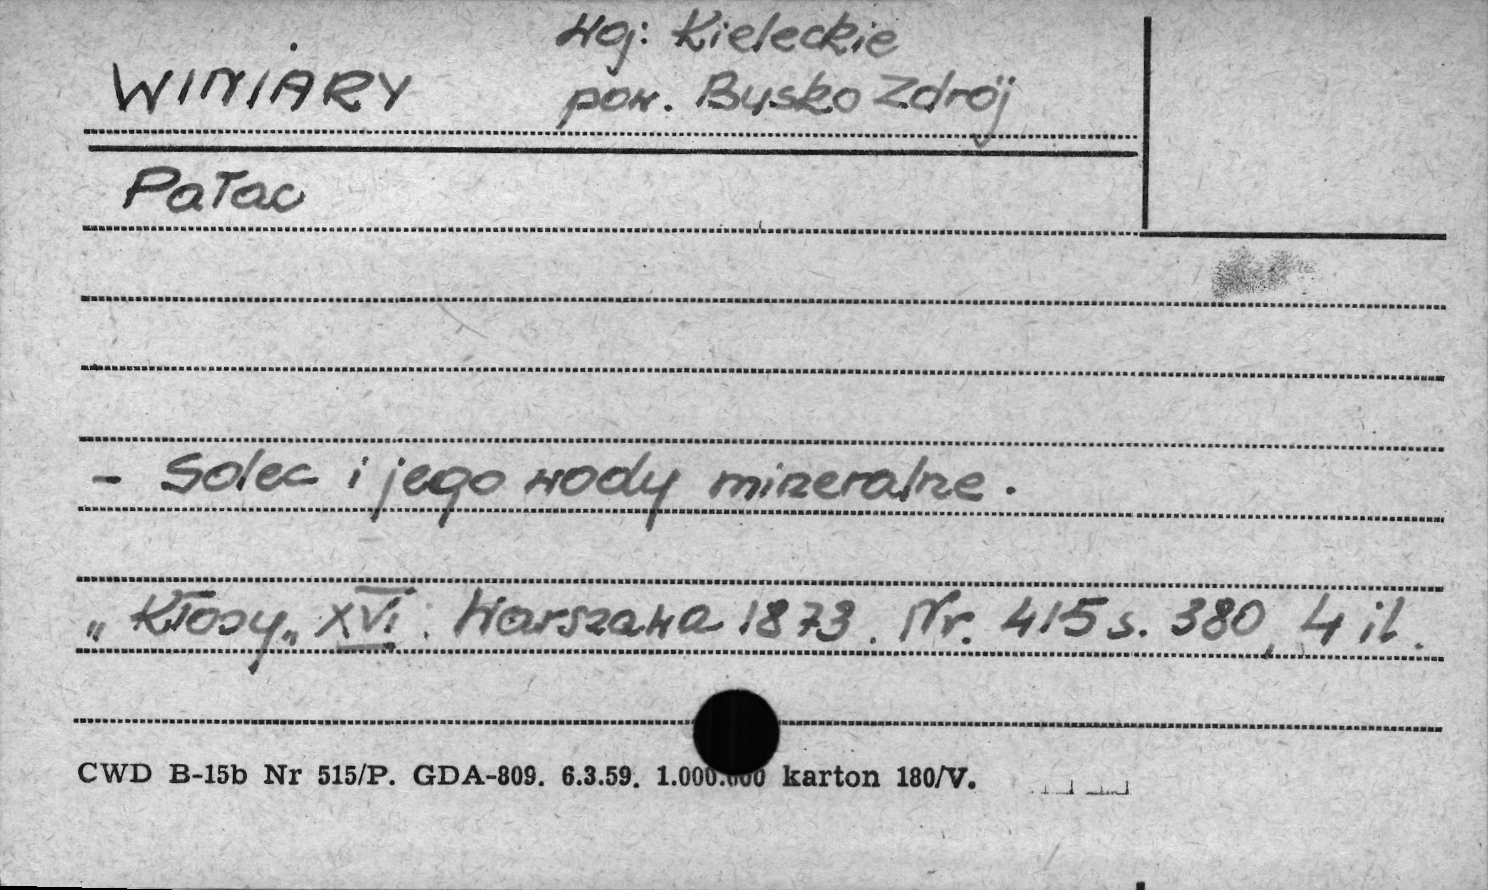 woj: Kieleckie
WINIARY pow. Busko Zdrój
Pałac
- Solec i jego wody mineralne.
„Kłosy„ XVI. Warszawa 1873. Nr. 415 s. 380, 4 il.
CWD B-15b Nr 515/P. GDA-809. 6.3.59. 1.000.000 karton 180/V.